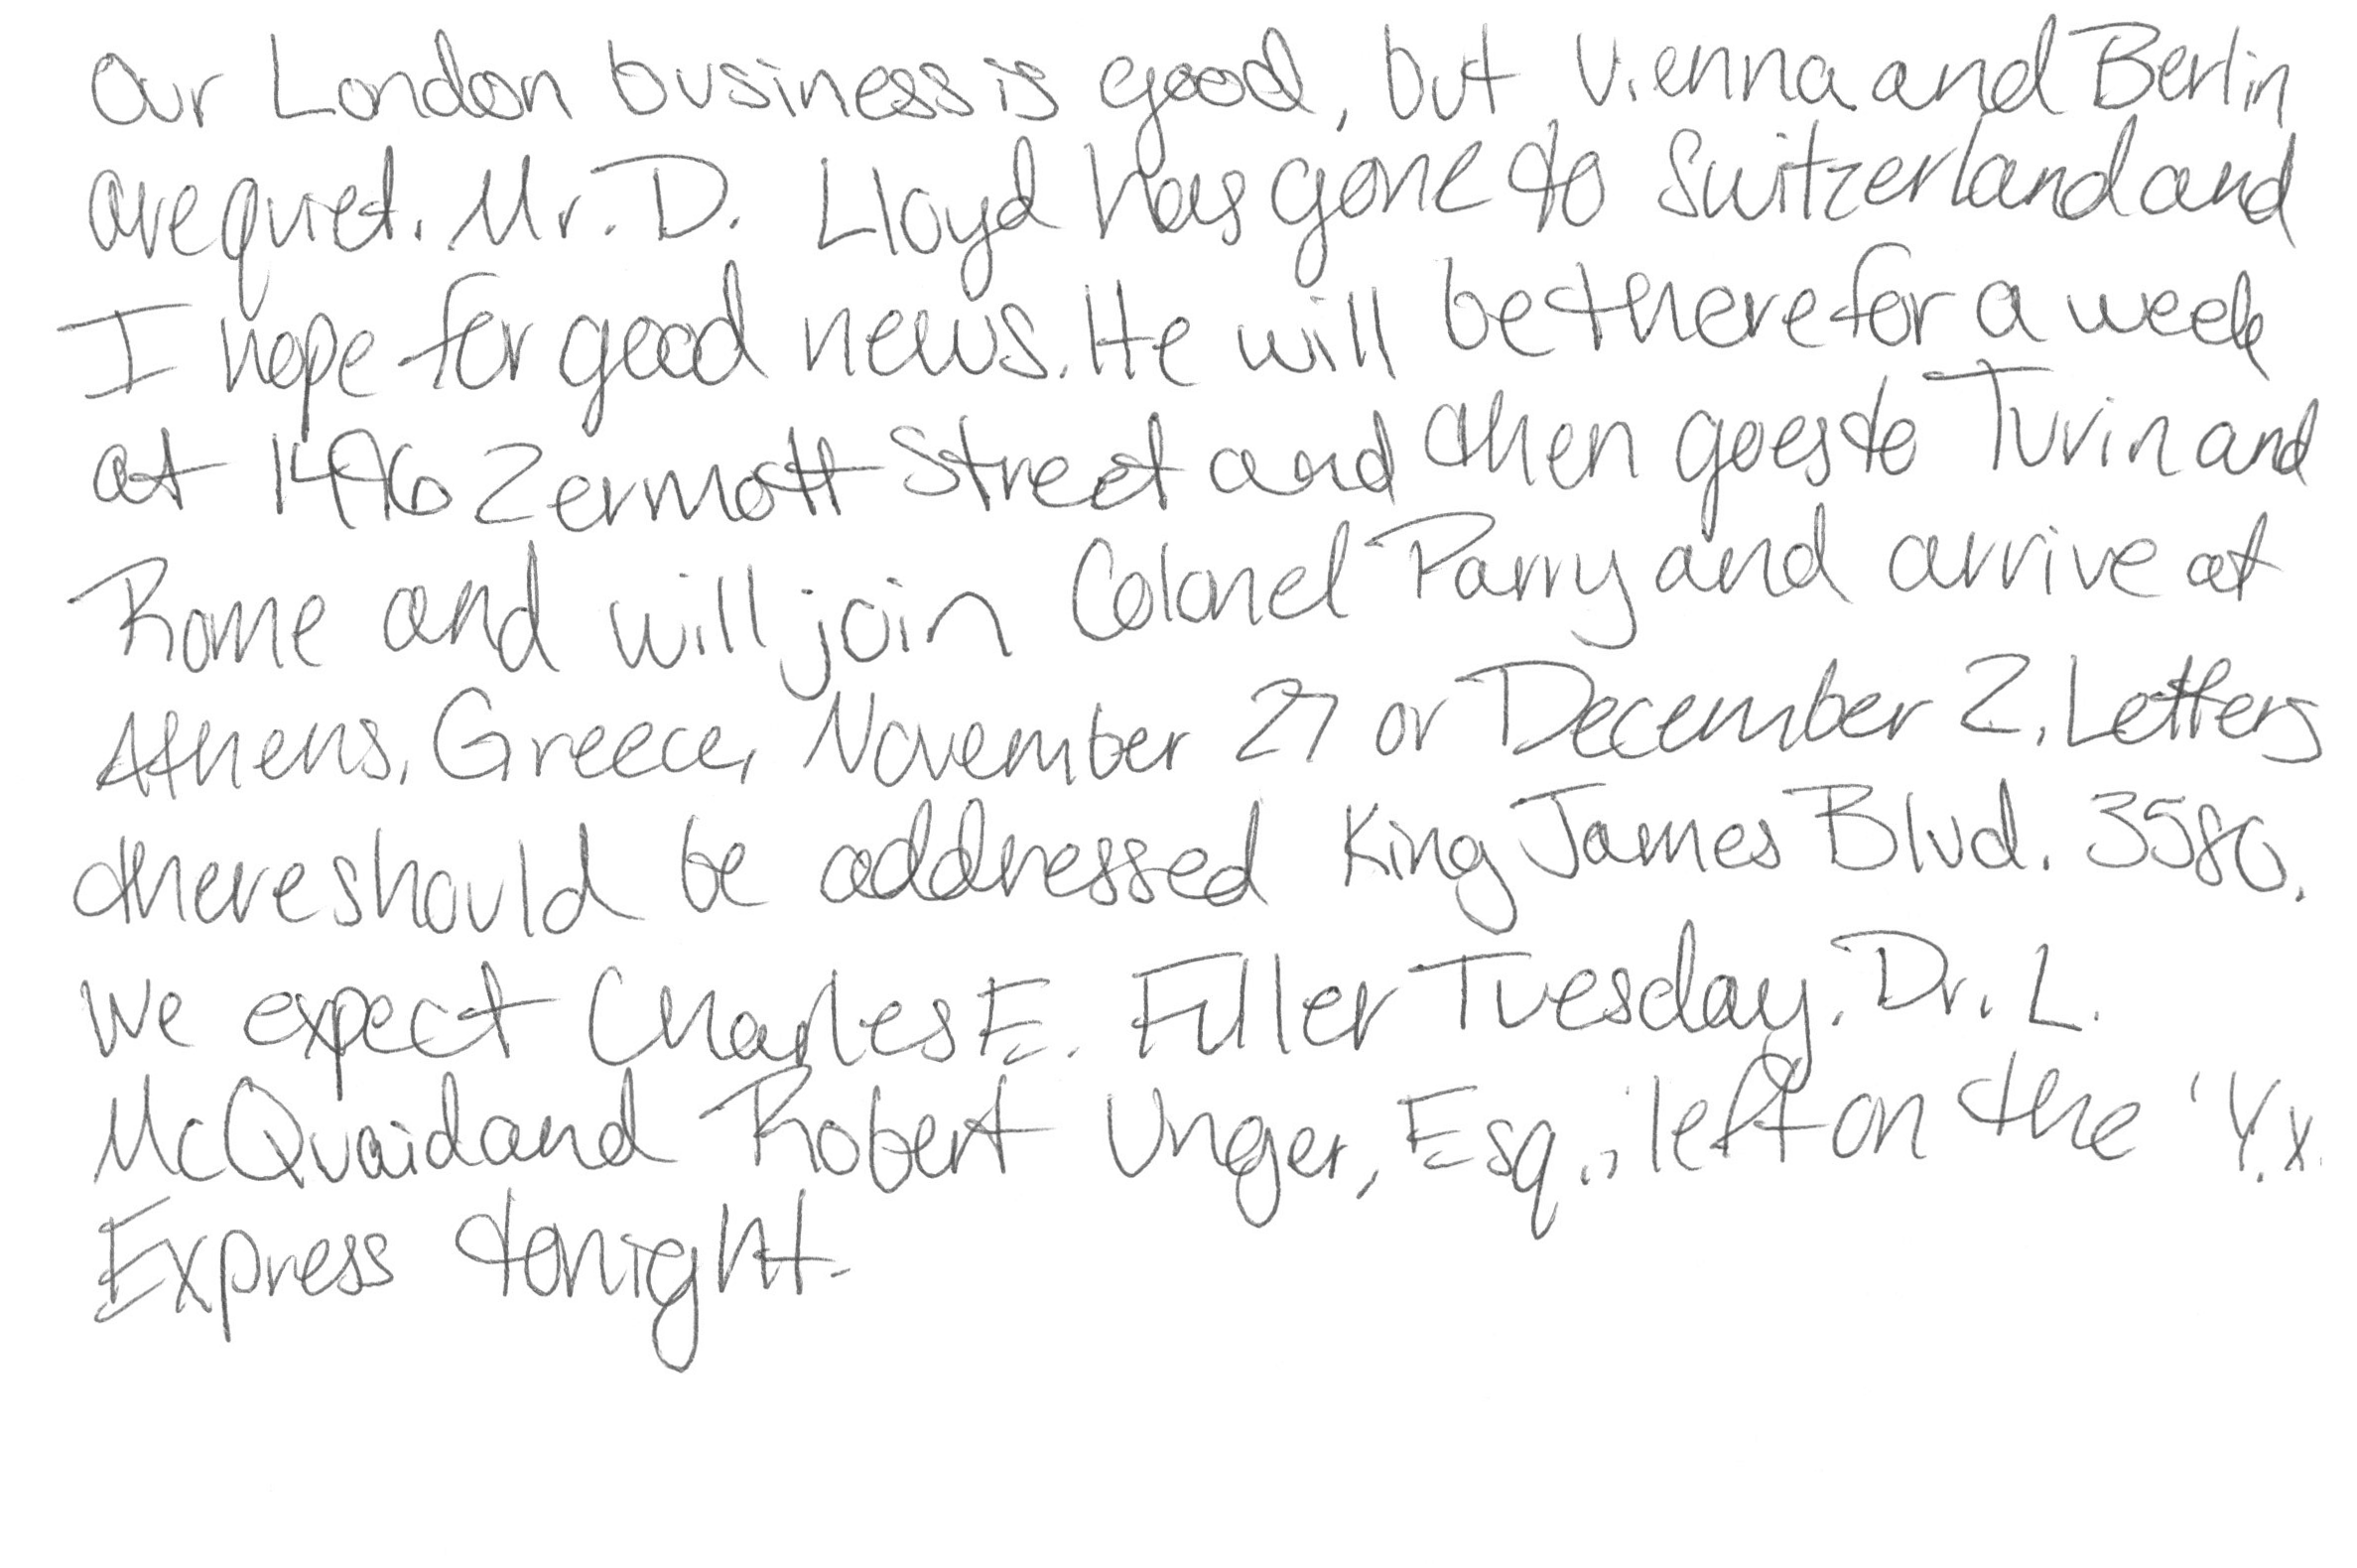 Our London business is good, but Vienna and Berlin
are quiet. Mr. D. Lloyd has gone to Switzerland and
I hope for good news. He will be there for a week
at 1496 Zermott Street and then goes to Turin and
Rome and will join Colonel Parry and arrive at
Athens, Greece, November 27 or December 2. Letters
there should be addressed King James Blvd. 3580.
We expect Charles E. Fuller Tuesday. Dr. L.
McQuaid and Robert Unger, Esq., left on the 'Y.X.
Express tonight.